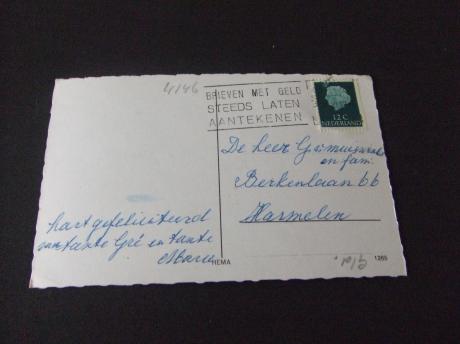 4146
BRIEVEN MET GELD
STEEDS LATEN
AANTEKENEN
12 C
NEDERLAND
De heer
en fam.
Berkenlaan 66
Harmelen
hartgefeliciteerd
van tante Gré en tante
Marie
HEMA
1265